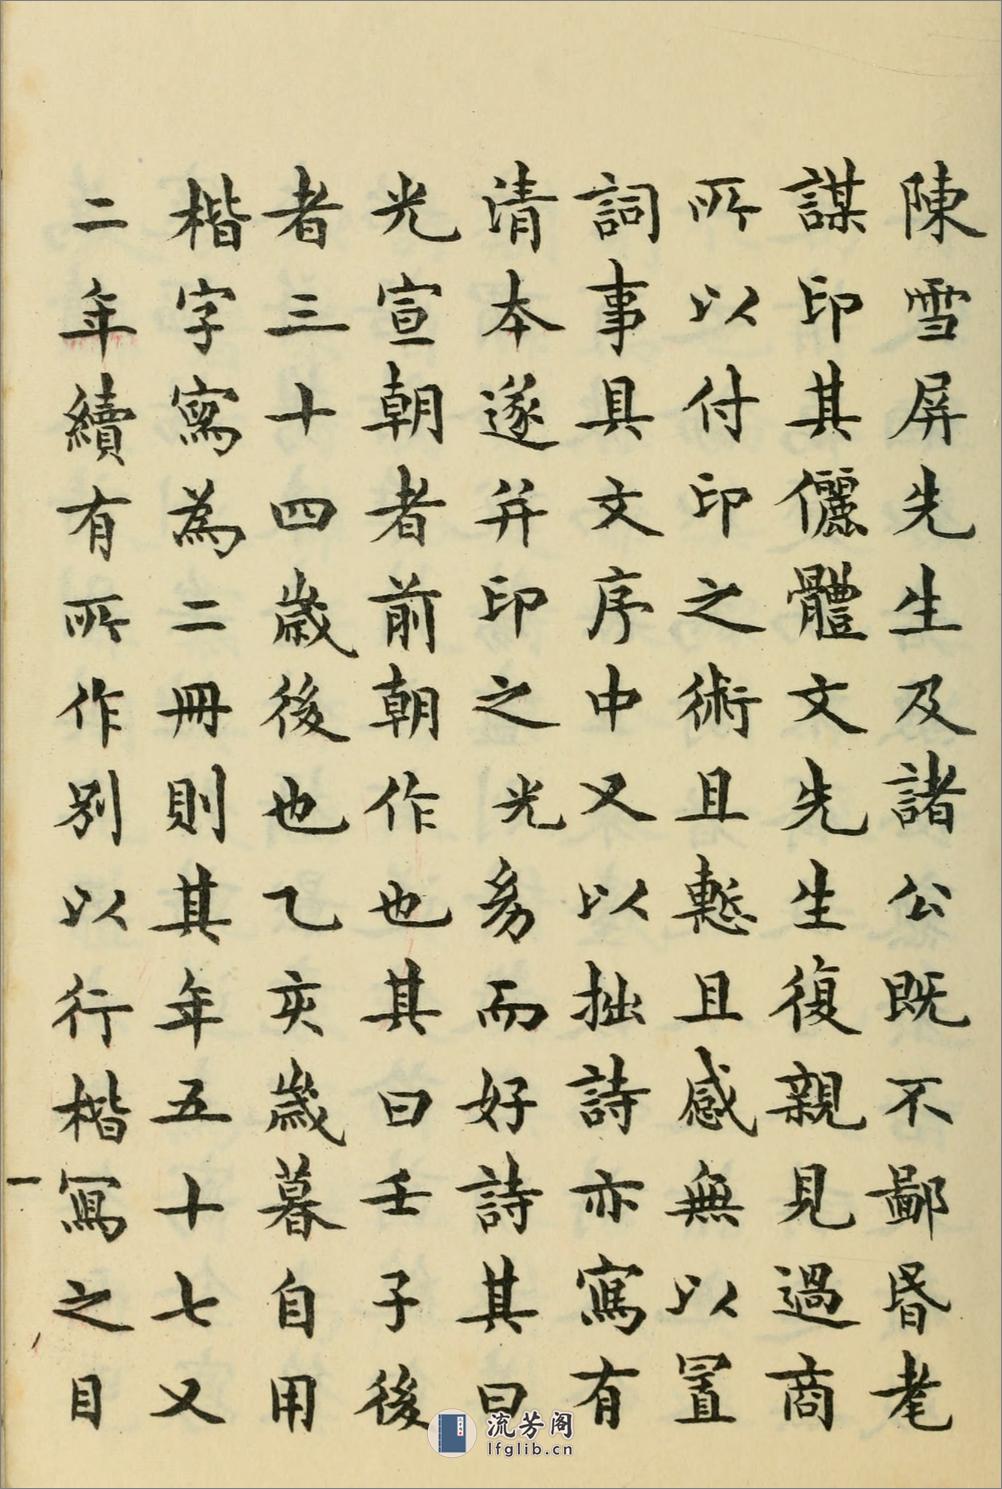 陳雪屏先生及諸公既不鄙昏耄
謀印其儷體文先生復親見過商
所以付印之術且慙且感無以置
詞事具文序中又以拙詩亦寫有
清本遂并印之光幼而好詩其曰
光宣朝者前朝作也其曰壬子後
者三十四歲後也乙亥歲暮自用
楷字寫為二冊則其年五十七又
二年續有所作別以行楷寫之目
一
流芳阁
lfglib.cn